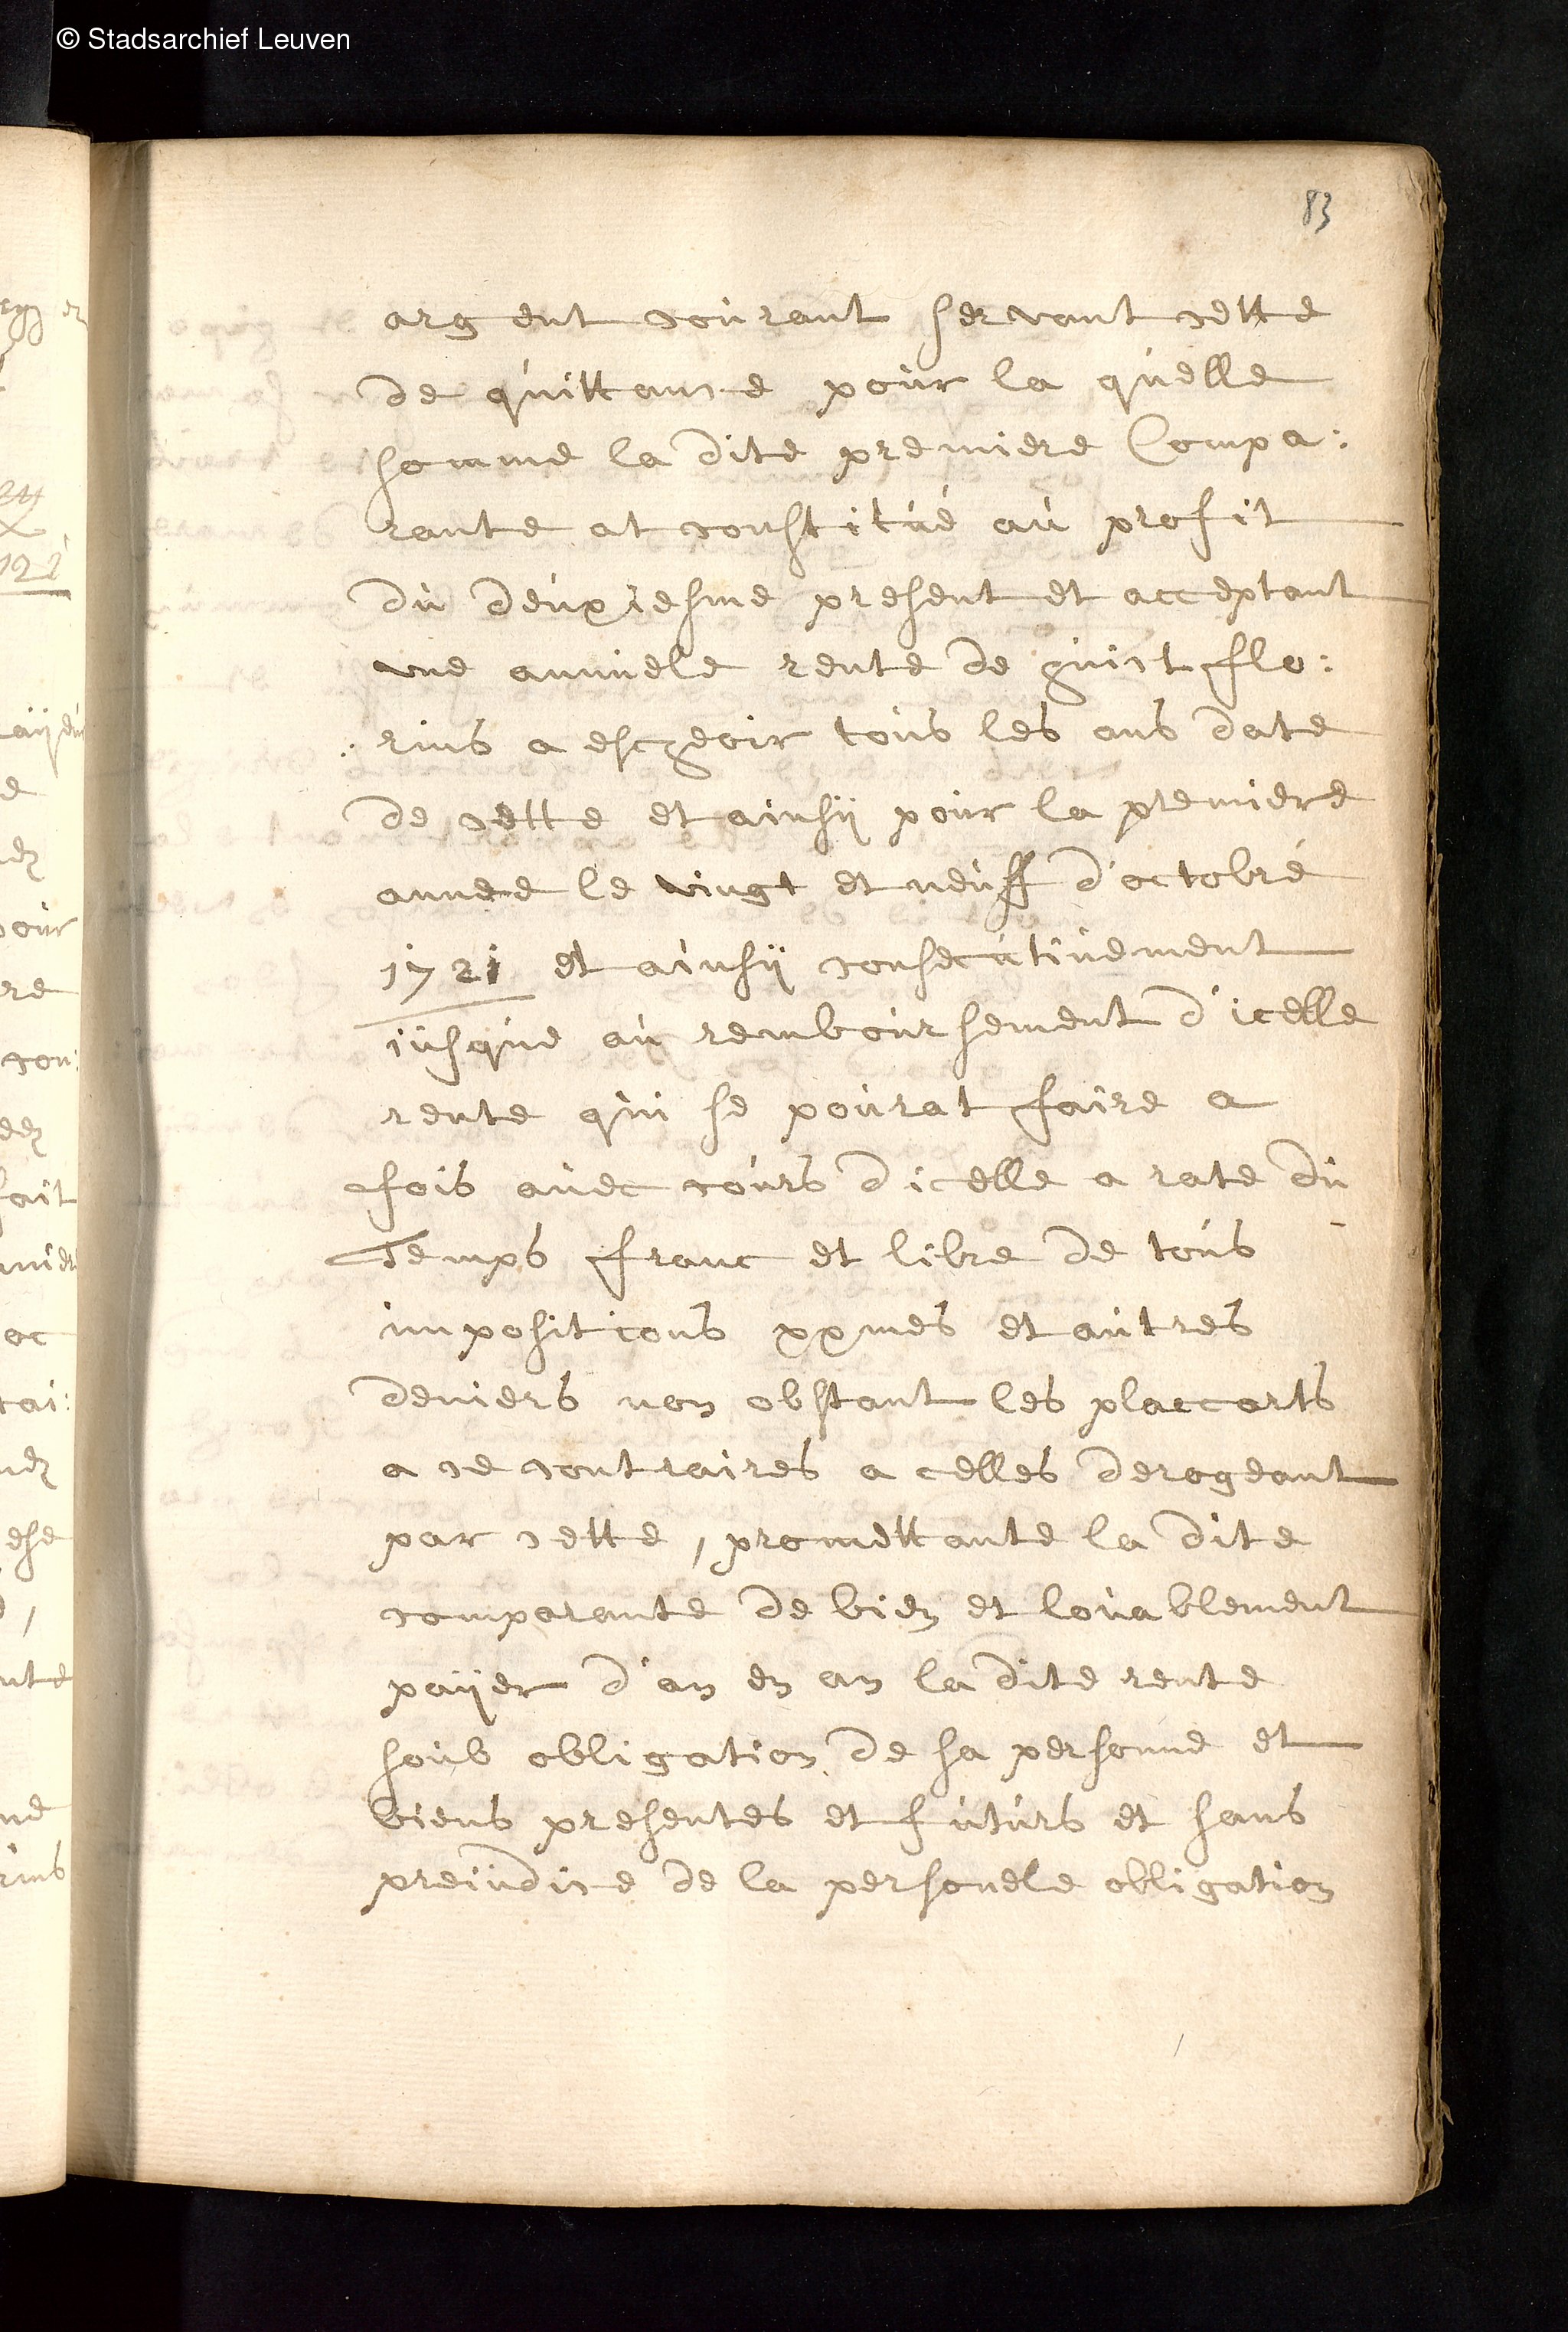 © Stadsarchief Leuven
83
argent courant servant cette
de quittance pour la quelle
somme la dite premiere Compa:
rante at constitué au profit
du deuxiesme present et acceptant
une annuele rente de huict flo:
:rins a escheoir tous les ans date
de cette et ainsij pour la premiere
annee le vingt et neuff d'octobre
1721 et ainsij consecutivement
iusque au remboursement d'icelle
rente qui se pourat faire a
fois avec cours d'icelle a rate du
Temps franc et libre de tous
impositions xxmes et autres
deniers non obstant les placcarts
a ce contraires a celles derogeant
par cette, promettante la dite
comparante de bien et louablement
paijer d'an en an la dite rente
soub obligation de sa personne et
biens presentes et futurs et sans
preiudice de la personele obligation